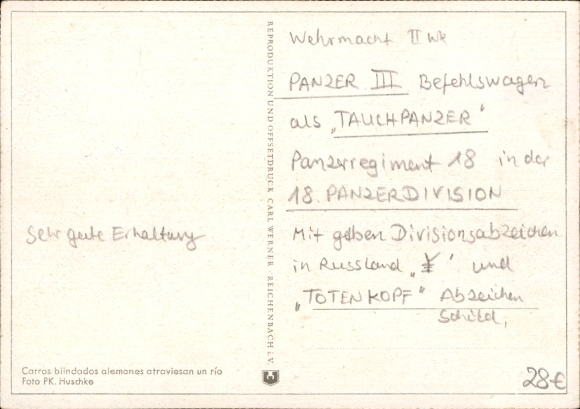 Wehrmacht II WK
PANZER III Befehlswagen
als „TAUCHPANZER“
Panzerregiment 18 in der
18. PANZERDIVISION
Mit gelben Divisionsabzeichen
in Russland „¥“ und
„TOTENKOPF“ Abzeichen
Schild,
Sehr gute Erhaltung
REPRODUKTION UND OFFSETDRUCK CARL WERNER, REICHENBACH i.V.
Carros blindados alemanes atraviesan un río
Foto PK. Huschke
28€